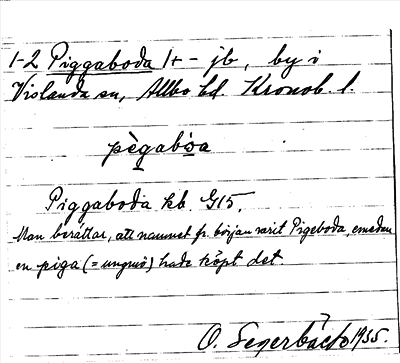 1-2 Piggaboda 1+ - jb, by i
Vislanda sn, Allbo hd Kronob. l.
pègabøa
Piggaboda kb. G15.
Man berättar, att namnet fr. början varit Pigeboda, emedan
en piga (= ungmö) hade köpt det.
O. Segerbäck 1935.